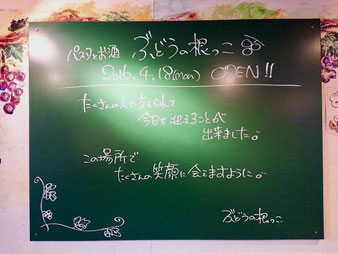 パスタとお酒 ぶどうの根っこ
2016.4.18(mon) OPEN!!
たくさんの人に支えられて
今日を迎えることが
出来ました。
この場所で
たくさんの笑顔に会えますように。
ぶどうの根っこ